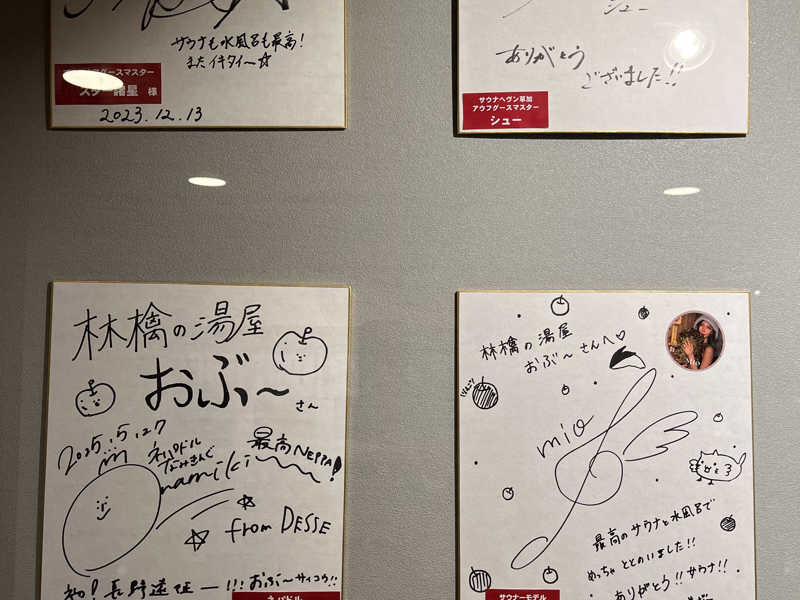 サウナも水風呂も最高!
またイキタイ〜☆
グースマスター
スター諸星 様
2023.12.13
シュー
ありがとう
ございました!!
サウナヘヴン草加
アウフグースマスター
シュー
林檎の湯屋
おぶ〜
さん
2025.5.27
ネッパドル
なみきんぐ
namiki
最高NEPPA!
from DESSE
初!長野遠征ー!!! おぶ〜サイコウ!!
ネパドル
林檎の湯屋
おぶ〜さんへ♡
りんご
mio
最高のサウナと水風呂で
めっちゃととのいました!!
ありがとう!!サウナ!!
サウナーモデル